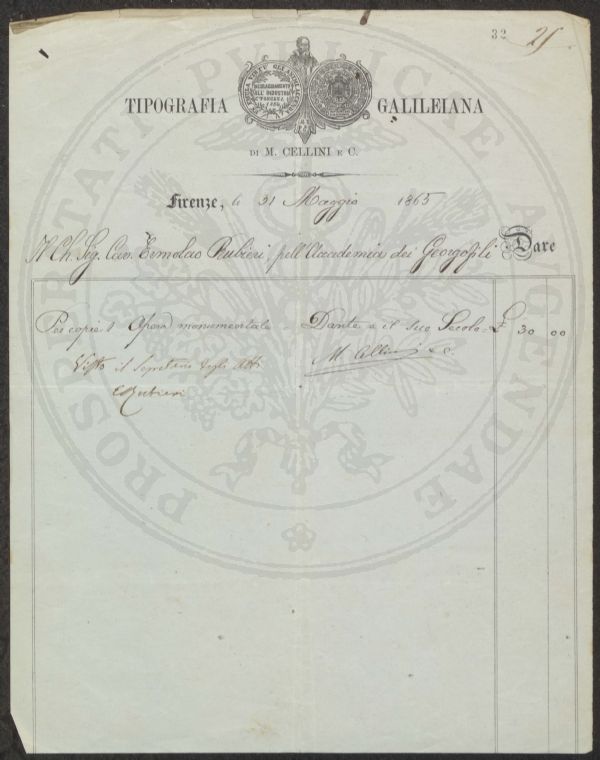 32 25
TIPOGRAFIA GALILEIANA
INCORAGGIAMENTO
ALL' INDUSTRIA
TOSCANA
DI M. CELLINI E C.
Firenze, li 31 Maggio 1865
Il Ch. Sig. Cav. Ermolao Rubieri, pell'Accademia dei Georgofili Dare
Per copie 1 Opera monumentale - Dante e il suo Secolo £ 30 00
M Cellini e C.
Visto il Segretario degli Atti
E Rubieri
PROSPERITATI PUBLICAE AUGENDAE